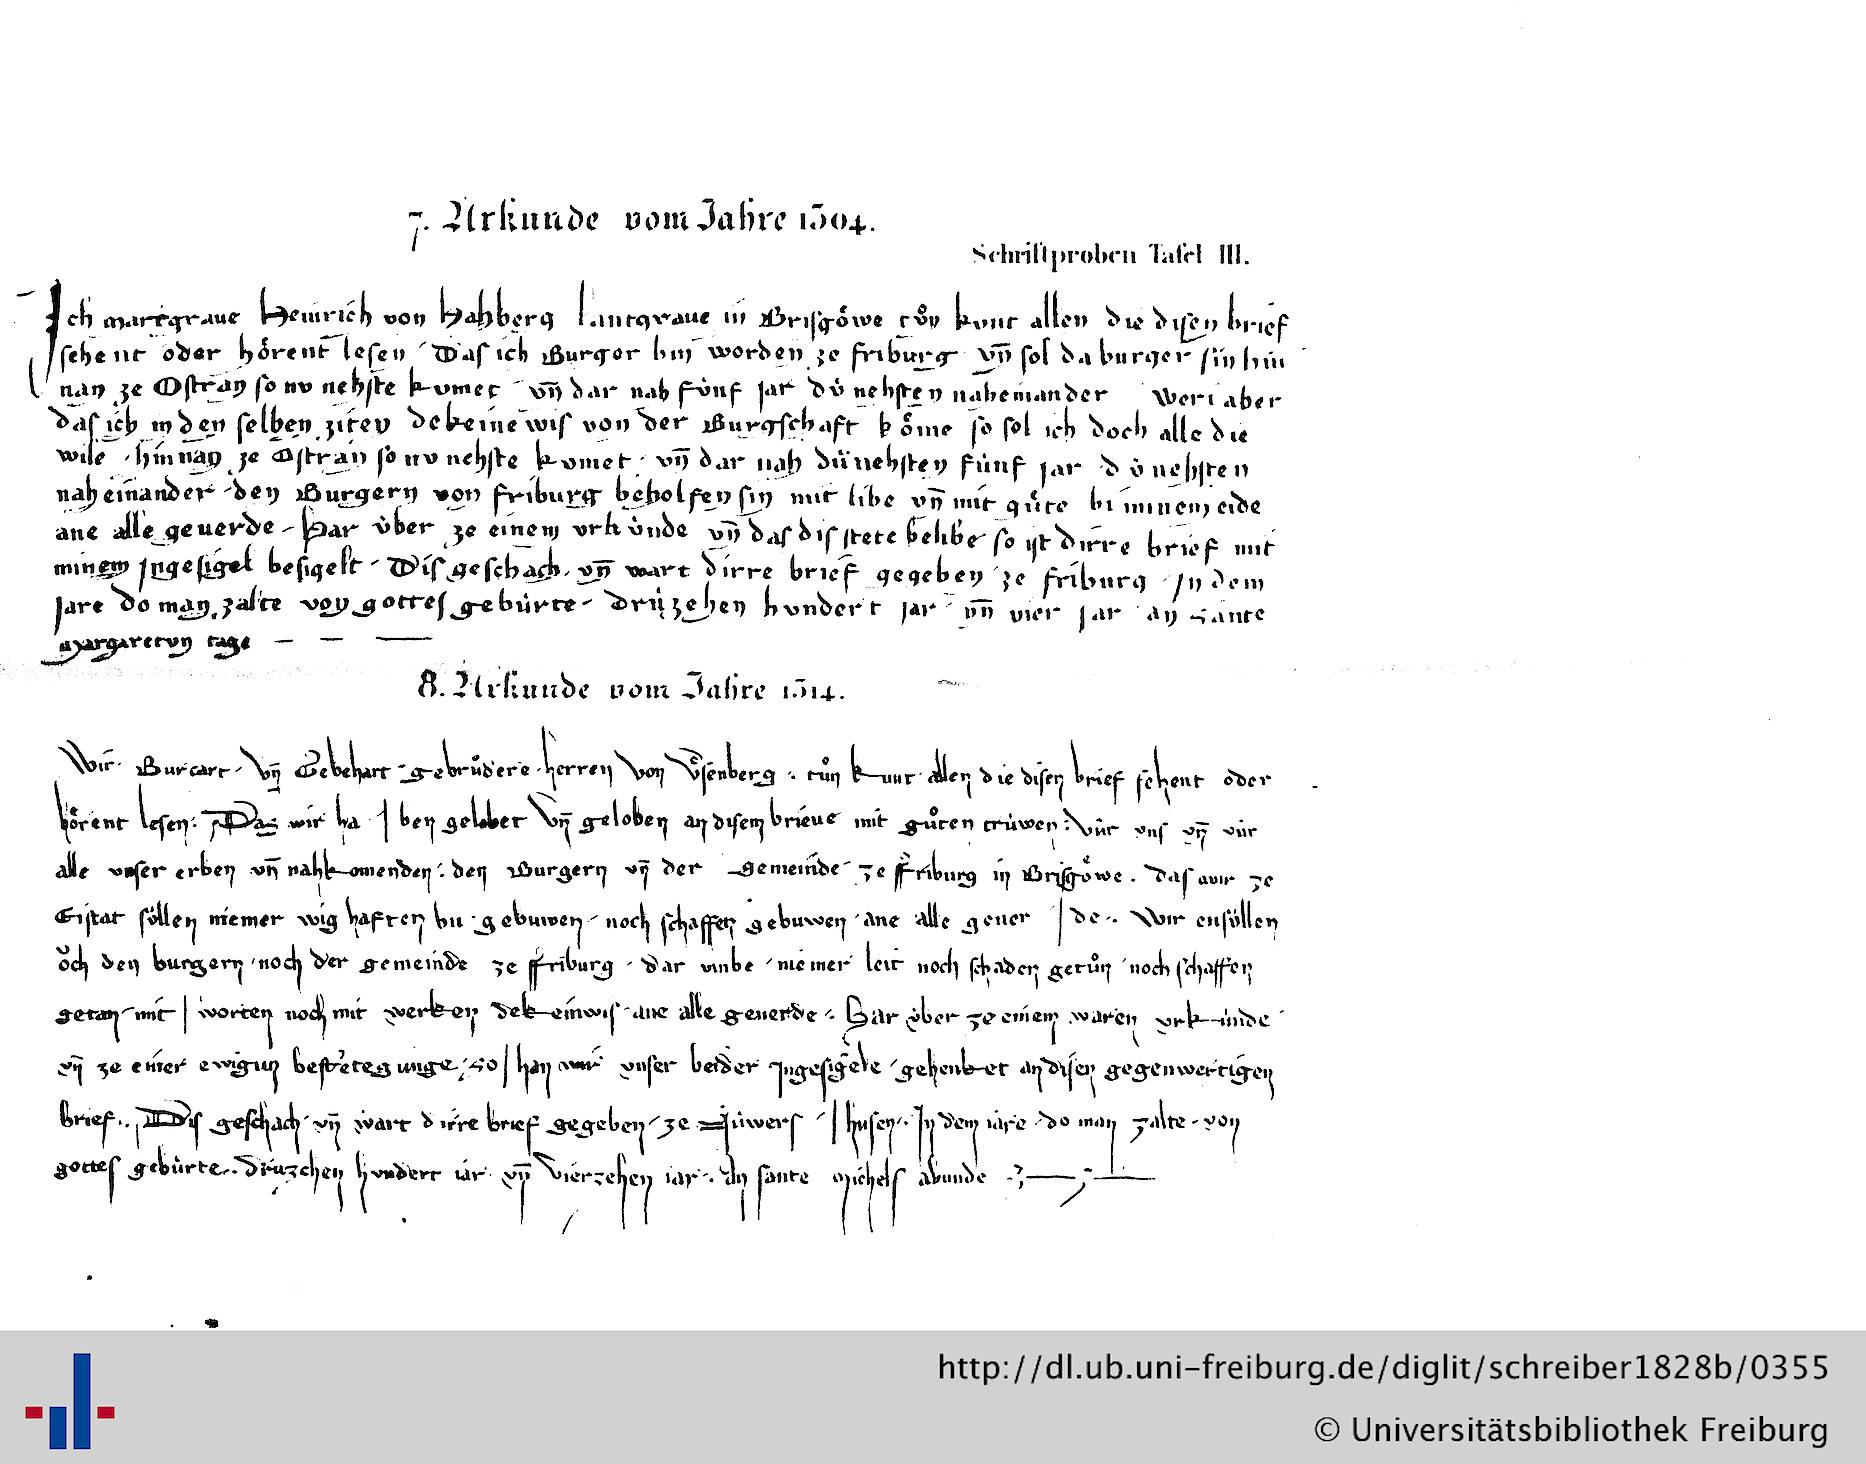 7. Urkunde vom Jahre 1304.
Schriftproben Tafel III.
Ich marcgraue Heinrich von Hahberg lantgraue in Brisgoͤwe tuͦn kunt allen die disen brief
sehent oder hoͤrent lesen · Das ich Burger bin worden ze friburg vn̄ sol da burger sin hin
nan ze Ostran so nv nehste kvmet · vn̄ dar nah fúnf jar dú nehsten naheinander weri aber
das ich in den selben ziten dekeine wis von der Burgschaft koͤme so sol ich doch alle die
wile · hinnan ze Ostran so nv nehste kvmet · vn̄ dar nah dú nehsten fúnf jar dú nehsten
naheinander · den Burgern von friburg beholfen sin mit libe vn̄ mit guͦte bi minem eide
ane alle geuerde · Har úber ze einem vrkúnde vn̄ das dis stete belibe so ist dirre brief mit
minem Ingesigel besigelt · Dis geschach · vn̄ wart dirre brief gegeben ze friburg · In dem
jare do man zalte von gottes gebúrte · drúzehen hvndert jar vn̄ vier jar an sante
margaretvn tage
8. Urkunde vom Jahre 1314.
Wir · Burcart · vn̄ Gebehart · gebruͦdere · herren von Vͤsenberg · tuͦn kunt allen die disen brief sehent oder
hoͤrent lesen : Das wir ha | ben gelobet vn̄ geloben an disem brieue mit guͦten trúwen : vúr vns vn̄ vúr
alle vnser erben vn̄ nahkomenden : den Burgern vn̄ der gemeinde ze ffriburg in Brisgoͤwe . das wir ze
Eistat soͤllen niemer wig haften bu · gebuwen · noch schaffen gebuwen · ane alle geuer | de ·. Wir ensoͤllen
oͮch den burgern · noch der gemeinde ze ffriburg · dar vmbe · niemer leit noch schaden getuͦn · noch schaffen
getan · mit | worten noch mit werken dekeinwis · ane alle geuerde ·. Har úber ze einem waren vrkúnde
vn̄ ze einer ewigun bestetegunge · so | han wir vnser beider Ingesigele · gehenket an disen gegenwertigen
brief ·. Dis geschach · vn̄ wart dirre brief gegeben · ze Núwers · | husen ·. In dem iare · do man zalte · von
gottes gebúrte ·. drúzehen hvndert iar · vn̄ vierzehen iar ·. An sante Michels abunde
http://dl.ub.uni-freiburg.de/diglit/schreiber1828b/0355
© Universitätsbibliothek Freiburg